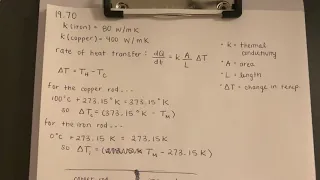 19.70
k (iron) = 80 W/m K
k (copper) = 400 W/m K
rate of heat transfer: dQ/dt = k A/L ΔT
ΔT = T_H - T_C
* k = thermal conductivity
* A = area
* L = length
* ΔT = change in temp
for the copper rod...
100°C + 273.15°K = 373.15°K
so ΔT_C = (373.15°K - T_H)
for the iron rod...
0°C + 273.15°K = 273.15°K
so ΔT_I = ( T_H - 273.15°K)
copper rod